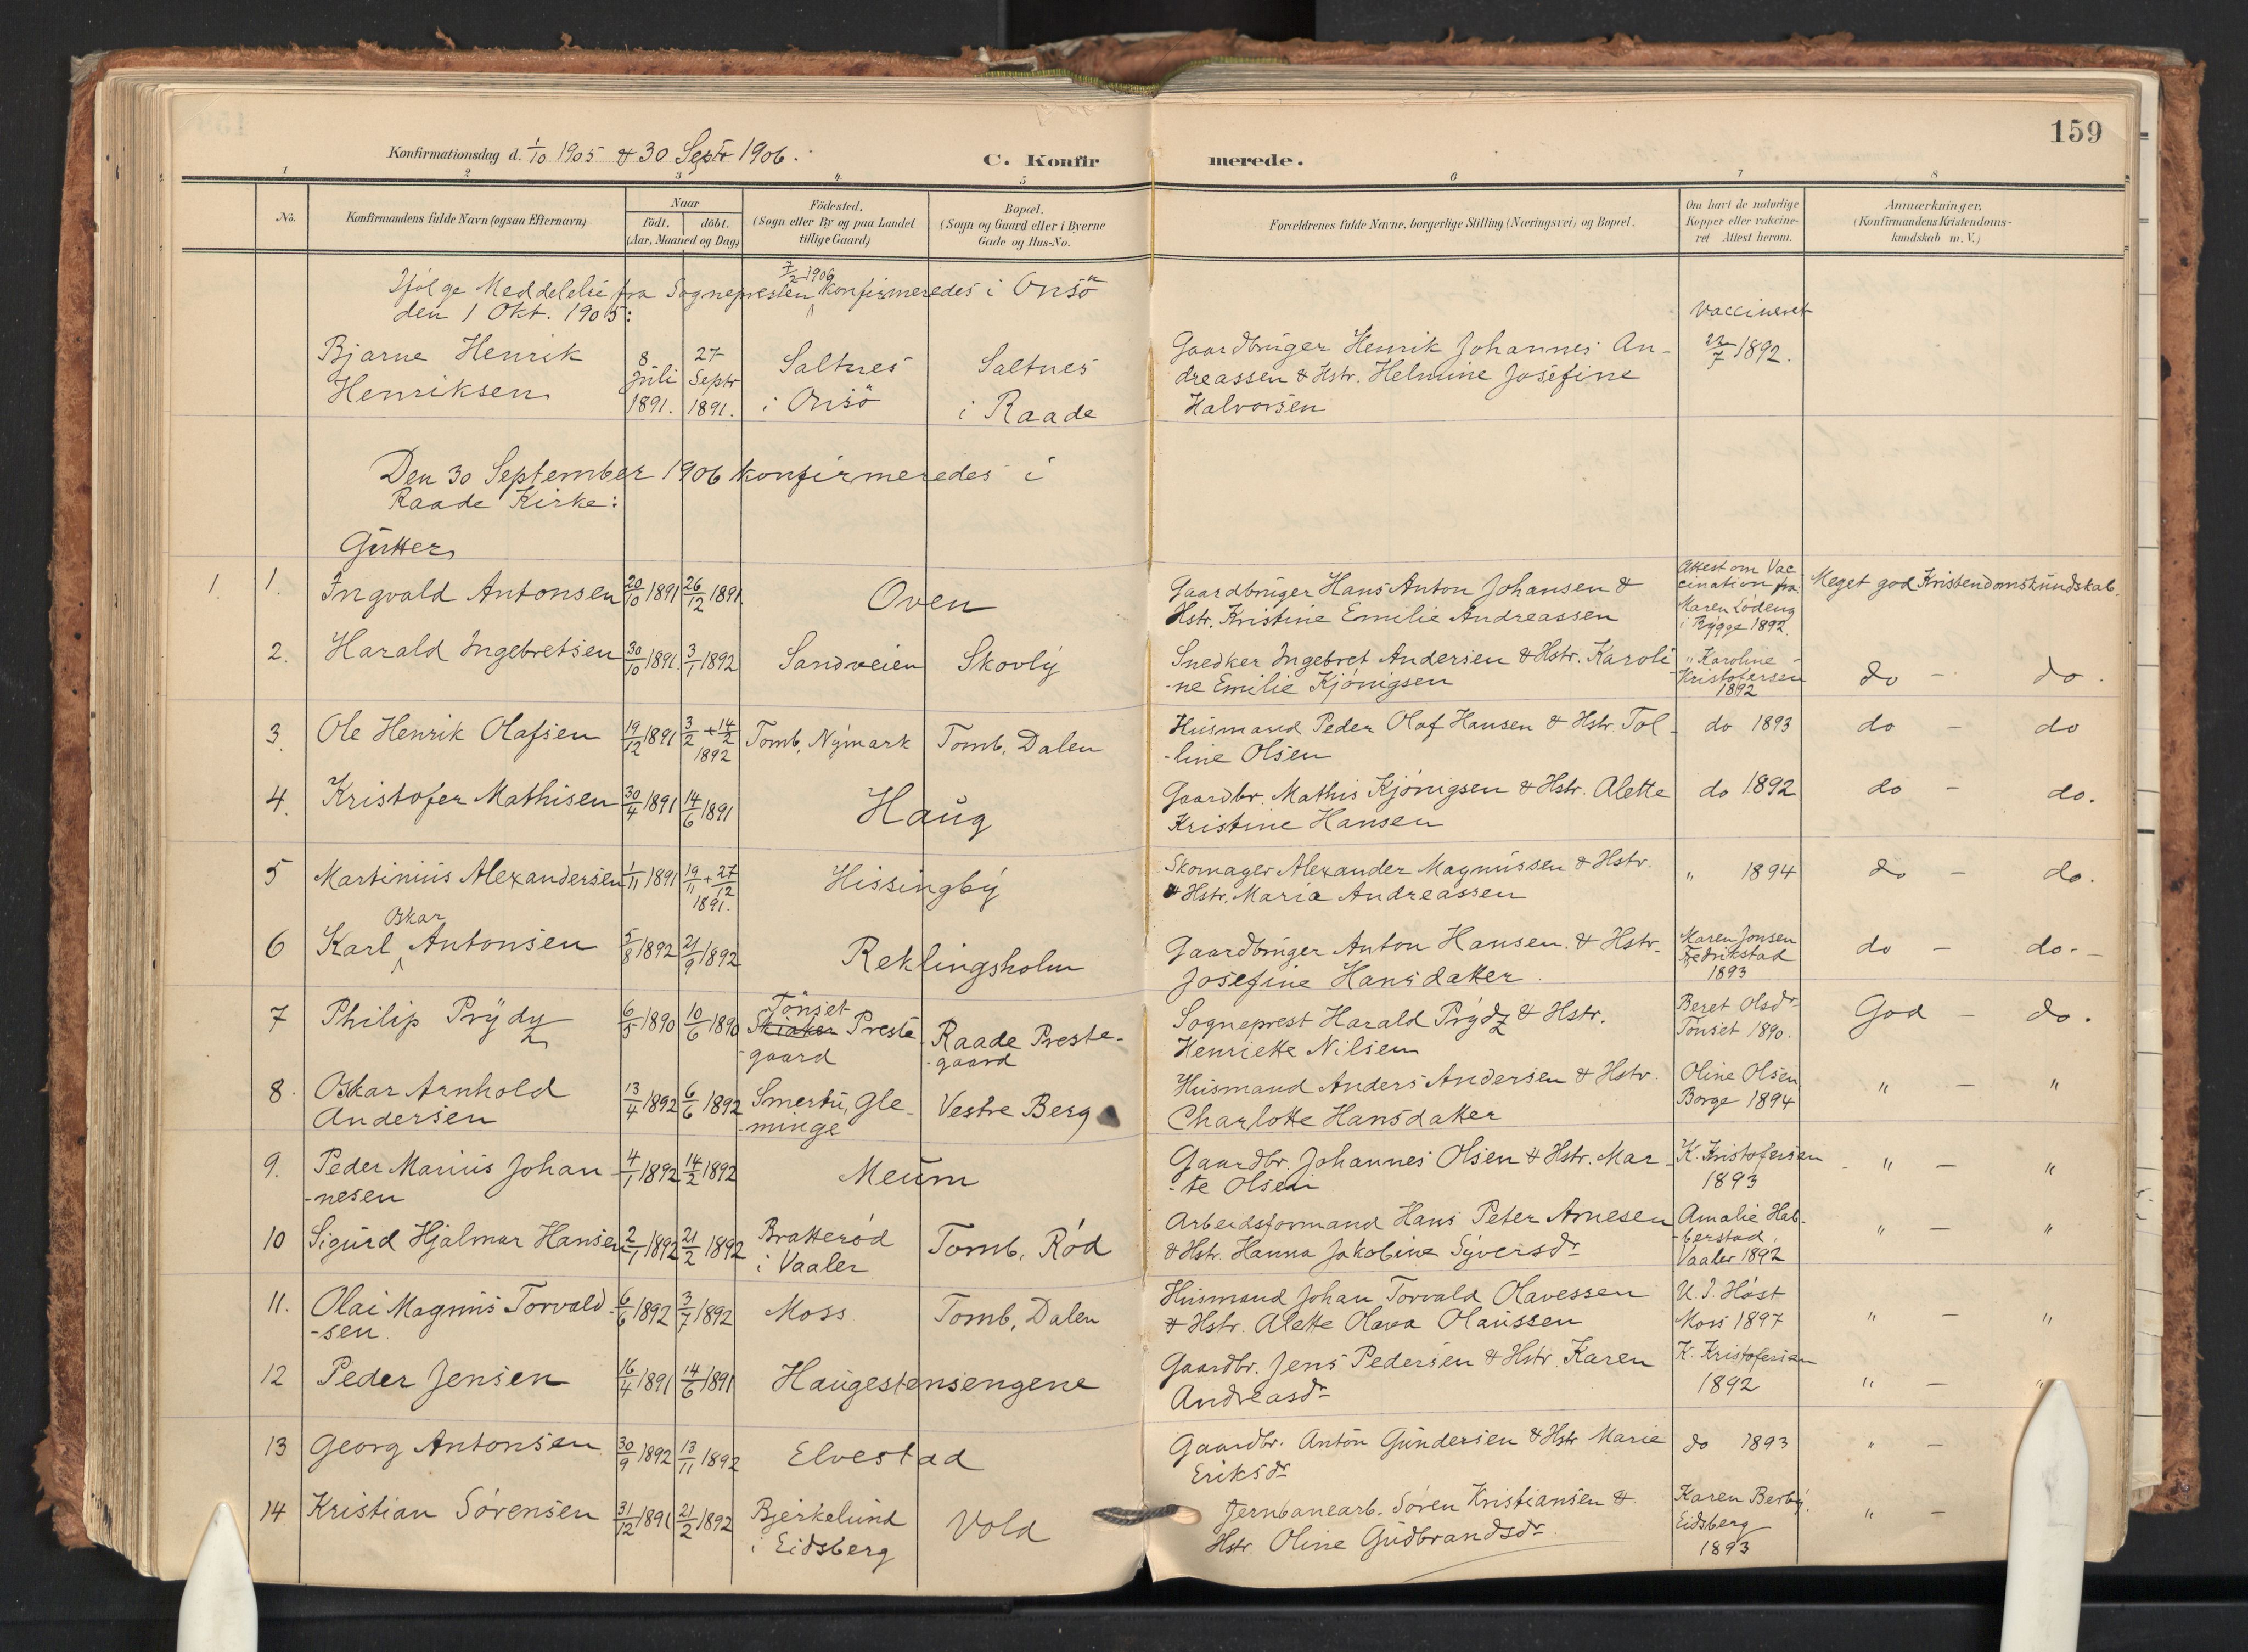 159
Konfirmationsdag d. 1/10 1905 & 30 Septr 1906.
C. Konfirmerede.
1 2 3 4 5 6 7 8
No.
Konfirmandens fulde Navn (ogsaa Efternavn)
Naar
födt. döbt.
(Aar, Maaned og Dag)
Födested.
(Sogn eller By og paa Landet
tillige Gaard)
Bopæl.
(Sogn og Gaard eller i Byerne
Gade og Hus-No.
Forældrenes fulde Navne, borgerlige Stilling (Næringsvei) og Bopæl.
Om havt de naturlige
Kopper eller vakcine-
ret Attest herom.
Anmærkninger.
(Konfirmandens Kristendoms-
kundskab m. V.)
7/2 1906
Ifölge Meddelelse fra Sognepresten konfirmeredes i Onsö
den 1 Okt. 1905:
Bjarne Henrik
Henriksen
8
juli
1891.
27
Septr
1891.
Saltnes
i Onsö
Saltnes
i Raade
Gaardbruger Henrik Johannes An-
dreassen & Hstr. Helmine Josefine
Halvorsen
Vaccineret
22/7 1892.
Den 30 September 1906 konfirmeredes i
Raade Kirke:
Gutter
1. 1. Ingvald Antonsen 20/10 1891 26/12 1891 Oven
Gaardbruger Hans Anton Johansen &
Hstr. Kristine Emilie Andreassen
Attest om Vac
cination fra
Maren Lödeng
i Rygge 1892.
Meget god Kristendomskundskab.
2. Harald Ingebretsen 30/10 1891. 3/1 1892 Sandveien Skovly
Snedker Ingebret Andersen & Hstr. Karoli
-ne Emilie Kjönigsen
" Karoline
Kristofersen
1892
do - do.
3. Ole Henrik Olafsen 19/12 1891 3/2 + 14/2
1892
Tomb, Nymark Tomb, Dalen
Husmand Peder Olaf Hansen & Hstr. Tol-
-line Olsen
do 1893 do - do
4. Kristofer Mathisen 30/4 1891 14/6 1891 Haug
Gaardbr. Mathis Kjönigsen & Hstr. Alette
Kristine Hansen
do 1892 do - do.
5 Martinius Alexandersen 1/11 1891 19/11 + 27/12
1891.
Hissingby
Skomager Alexander Magnussen & Hstr.
& Hstr. Maria Andreassen
" 1894 do - do.
Oskar
6 Karl Antonsen 5/8 1892 21/9 1892 Reklingsholm
Gaardbruger Anton Hansen & Hstr.
Josefine Hansdatter.
Maren Jonsen
Fredrikstad
1893
do - do.-
7 Philip Prydz 6/5 1890 10/6 1890
Tönset
Preste
-gaard
Raade Preste-
-gaard
Sogneprest Harald Prydz & Hstr.
Henriette Nilsen
Beret Olsdr
Tönset 1890.
God - do.
8. Oskar Arnhold
Andersen
13/4 1892 6/6 1892
Smertu, Gle-
-minge
Vestre Berg
Husmand Anders Andersen & Hstr.
Charlotte Hansdatter
Oline Olsen
Borge 1894
" - "
9. Peder Marius Johan-
-nesen
4/1 1892 14/2 1892 Meum
Gaardbr. Johannes Olsen & Hstr. Mar-
-te Olsen
K. Kristofersen
1893
" - "
10 Sigurd Hjalmar Hansen 2/1 1892 21/2 1892
Bratteröd
i Vaaler
Tomb, Röd
Arbeidsformand Hans Peter Arnesen
& Hstr. Hanna Jakobine Syversdr
Amalie Hab-
-berstad,
Vaaler 1892
" - "
11. Olai Magnus Torvald-
-sen
6/6 1892 3/7 1892 Moss Tomb, Dalen
Husmand Johan Torvald Olavessen
& Hstr. Alette Olava Olaussen
U. J. Höst
Moss 1897
" - "
12 Peder Jensen 16/4 1891 14/6 1891 Haugestensengene
Gaardbr. Jens Pedersen & Hstr. Karen
Andreasdr
K. Kristofersen
1892
" - "
13 Georg Antonsen 30/9 1892 13/11 1892 Elvestad
Gaardbr. Anton Gundersen & Hstr Marie
Eriksdr
do 1893 " -
14 Kristian Sörensen 31/12 1891 21/2 1892
Bjerkelund
i Eidsberg
Vold
Jernbanearb. Sören Kristiansen &
Hstr. Oline Gudbrandsdr.
Karen Berby.
Eidsberg
1893
" -